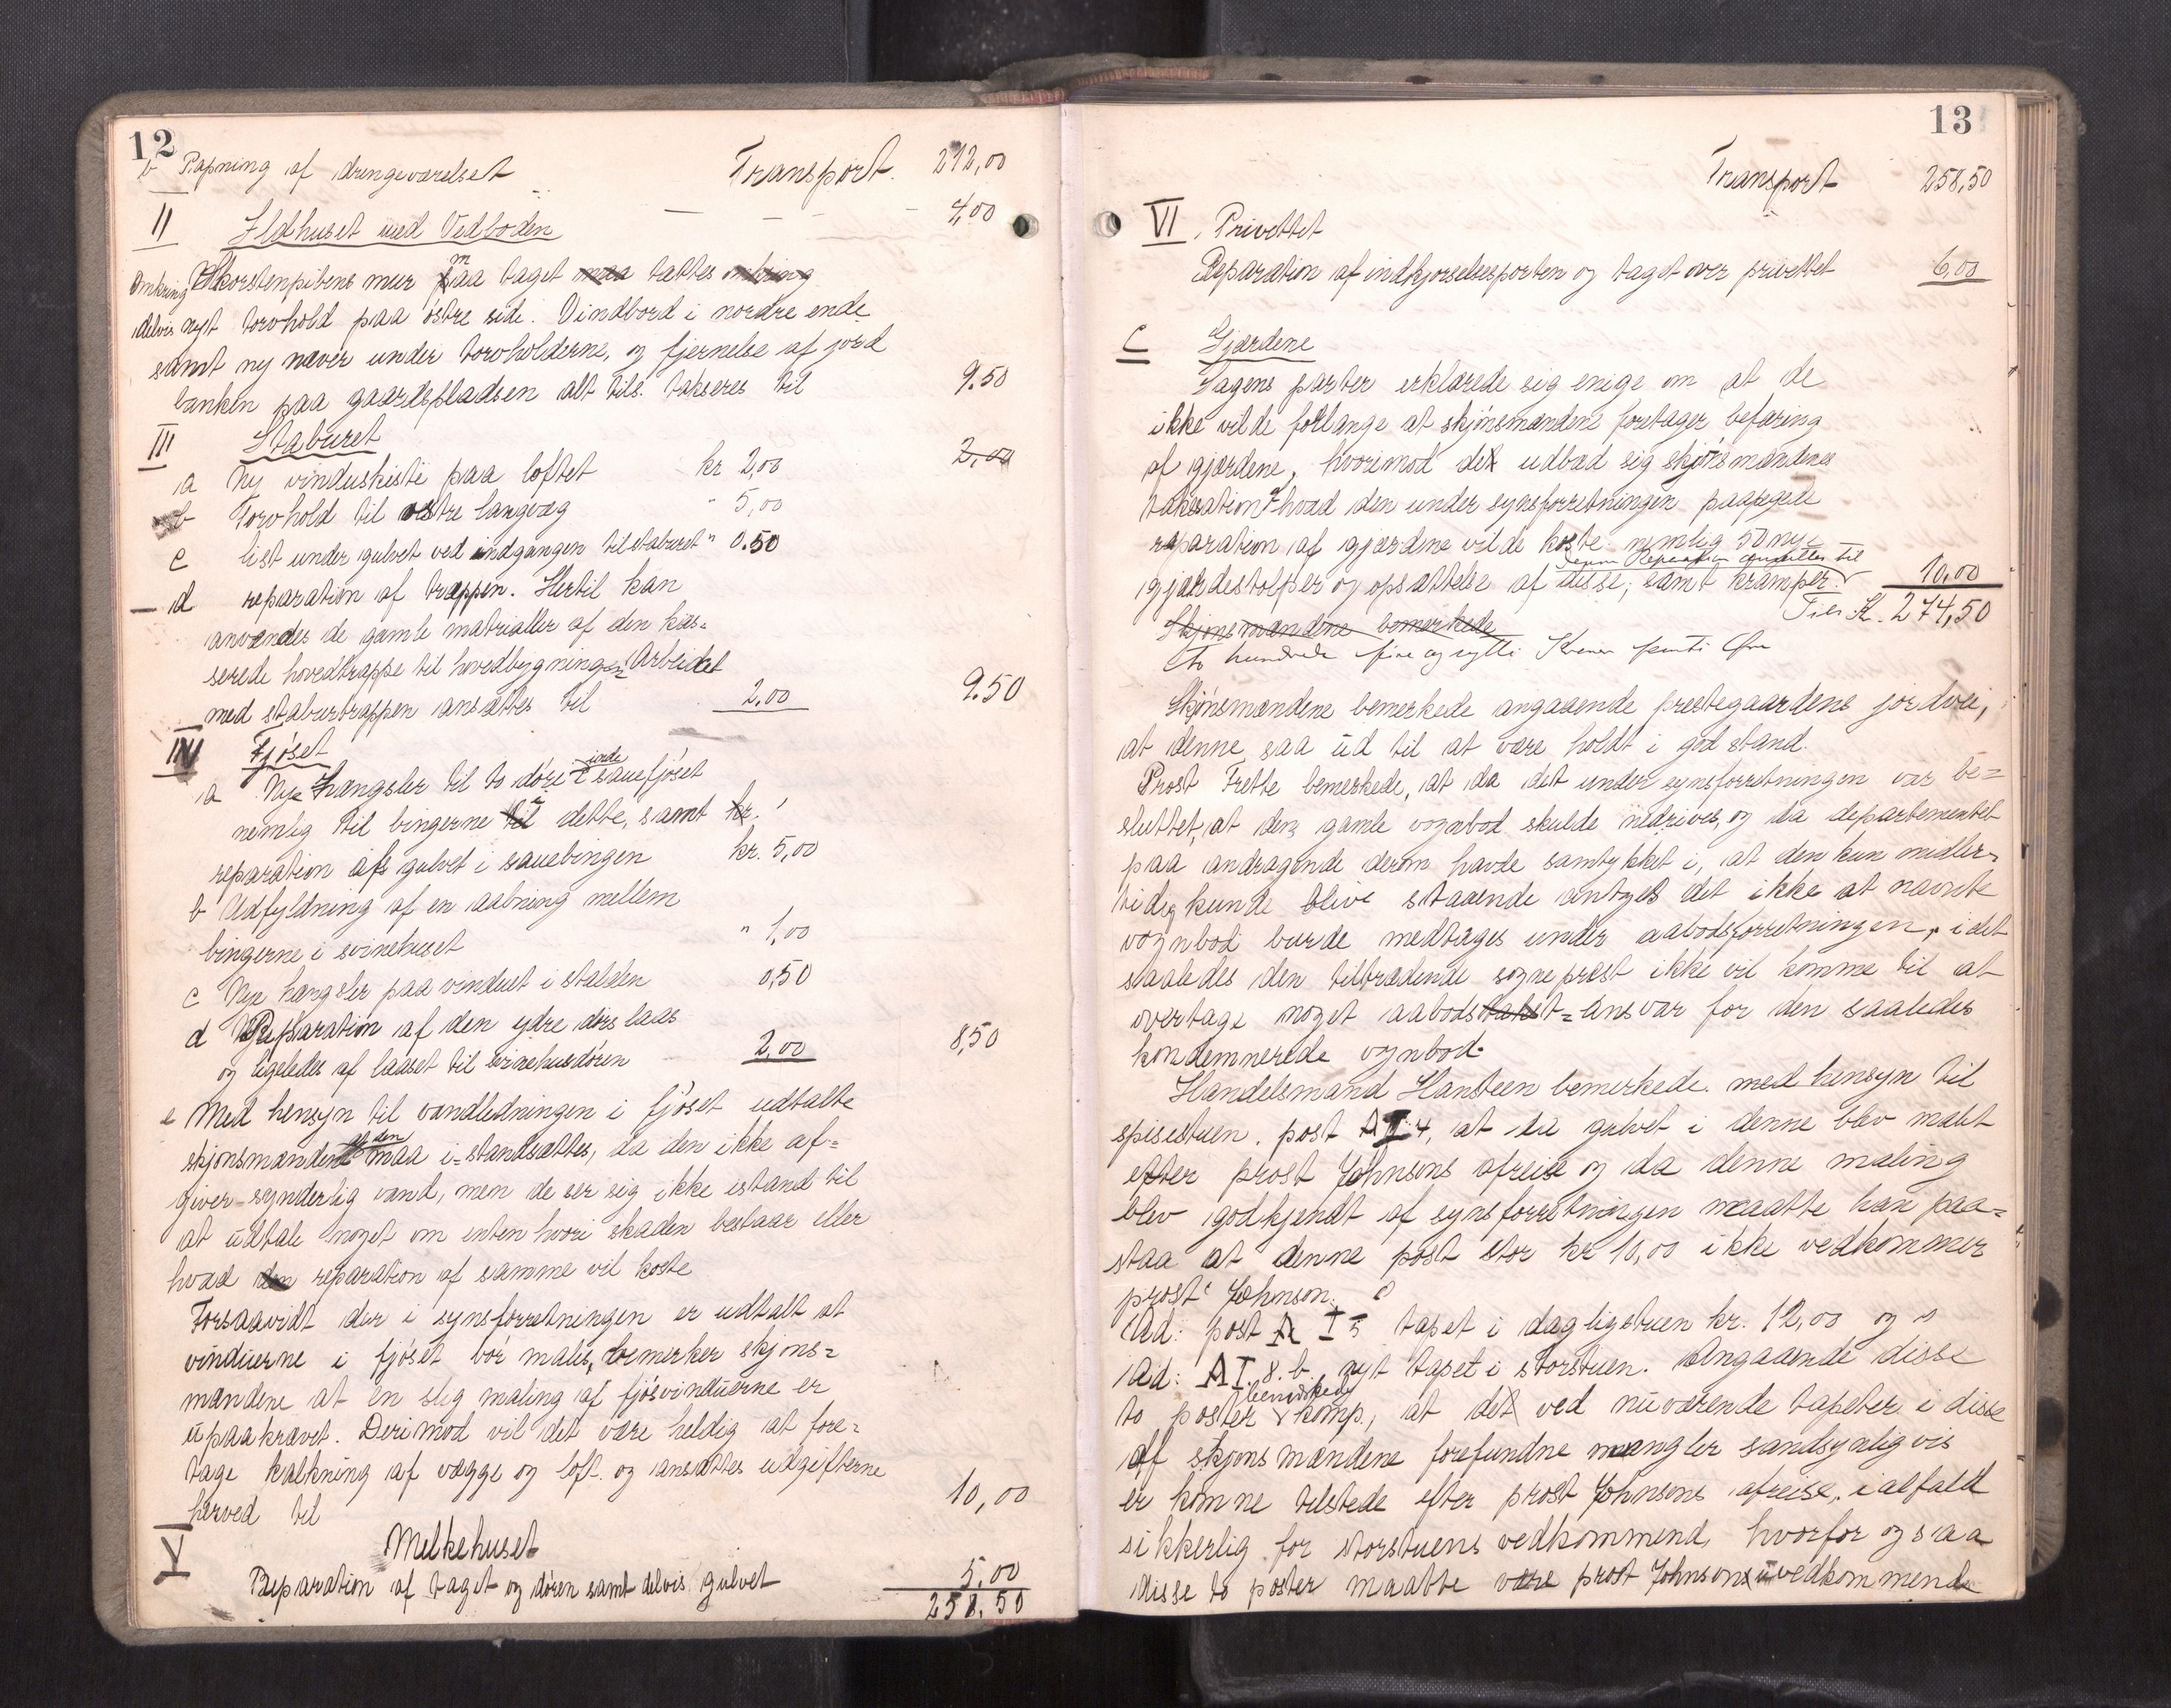 12
b Papning af drengeværelset Transport. 212,00
II Ildhuset med Vedboden — — — — 4,00
Omkring Skorstenpibens mur maa taget maa tættes omkring
delvis nyt torvhold paa östre side. Vindbord i nordre ende
samt ny næver under torvholderne, og fjernelse af jord
banken paa gaardspladsen alt tils. takseres til 9.50
III Staburet 2,00
a Ny vinduskiste paa loftet kr 2,00
b Torvhold til østre langvæg " 5,00
c list under gulvet ved indgangen til staburet " 0.50
d reparation af trappen. Hertil kan
anvendes de gamle matrialler af den kas=
serede hovedtrappe til hovedbygningen. Arbeidet
med staburtrappen ansættes til 2,00 9.50
IV Fjöset
a Nye hængsler til to döre i sauefjöset
nemlig til bingerne i dette, samt kr.
reparation af gulvet i sauebingen kr. 5,00
b Udfyldning af en aabning mellem
bingerne i svinehuset " 1,00
c Nye hængsler paa vinduet i stalden 0,50
d Reparation af den ydre dørs laas
og ligeledes af laaset til svinehusdören 2,00 8,50
e Med hensyn til vandledningen i fjöset udtalte
skjönsmændene at den maa i-standsættes, da den ikke af=
giver synderlig vand, men de ser sig ikke istand til
at udtale noget om enten hvori skaden bestaar eller
hvad den reparation af samme vil koste
Forsaavidt der i synsforretningen er udtalt at
vinduerne i fjöset bör males, bemerker skjöns=
mændene at en slig maling af fjösvinduerne er
upaakrævet. Derimod vil det være heldig at fore=
tage kalkning af vægge og loft og ansættes udgifterne
herved til 10,00
V Melkehuset
Reparation af taget og dören samt delvis gulvet 5,00
258,50
13
Transport 258,50
VI. Privettet
Reparation af indkjorselsesporten og taget over privettet 6,00
C Gjærdene
Dagens parter erklærede sig enige om at de
ikke vilde forlange at skjönsmændene foretager befaring
af gjærdene, hvorimod de udbad sig skjönsmændenes
taksation af hvad den under synsforretningen paapegede
reparation af gjærdene vilde koste nemlig 50 nye
gjærdestolper og opsættelse af disse, samt kramper. Denne Reparation ansættes til 10,00
Tils. Kr. 274,50
Skjønsmændene bemerkede
To hundrede fire og sytti Kroner femti Øre
Skjönsmændene bemerkede angaaende prestegaardens jordvei,
at denne saa ud til at være holdt i god stand.
Prost Frette bemerkede, at da det under synsforretningen var be=
sluttet, at den gamle vognbod skulde nedrives, og da departementet
paa andragende derom havde samtykket i, at den kun midler-
tidig kunde blive staaende antoges det ikke at nævnte
vognbod burde medtages under aabodsforretningen, idet
saaledes den tiltrædende sogneprest ikke vil komme til at
overtage noget aabodstakst=ansvar for den saaledes
kondemnerede vognbod.
Handelsmand Hansteen bemerkede med hensyn til
spisestuen, post A I 4, at da gulvet i denne blev malet
efter prost Johnsons afreise og da denne maling
blev godkjendt af synsforretningen maatte han paa=
staa at denne post stor kr 10,00 ikke vedkommer
prost Johnson.
Ad: post A I 5 tapet i dagligstuen kr. 12,00 og
Ad: A I. 8. b. nyt tapet i storstuen. Angaaende disse
to poster bemerkede komp., at de ved nuværende tapeter i disse
af skjønsmændene forefundne mangler sandsynligvis
er komne tilstede efter prost Johnsons afreise, i alfald
sikkerlig for storstuens vedkommend, hvorfor ogsaa
disse to poster maatte være prost Johnson uvedkommende